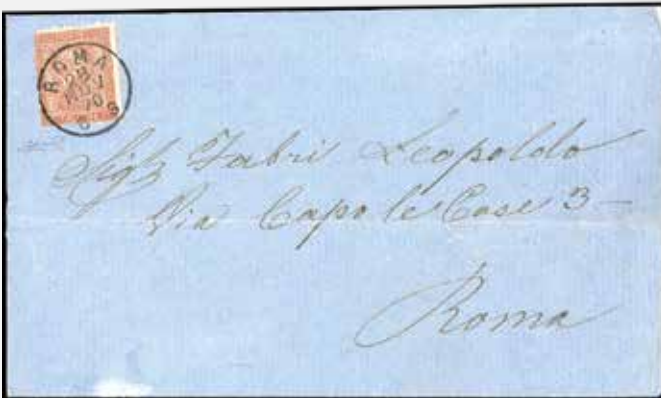 ROMA
70
Sigr Fabri Leopoldo
Via Capo le Case 3
Roma